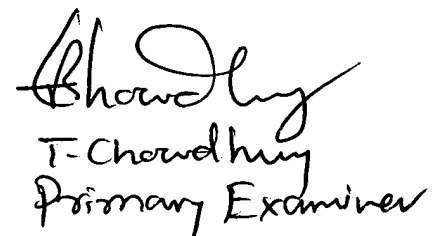 TChowdhury
T. Chowdhury
Primary Examiner